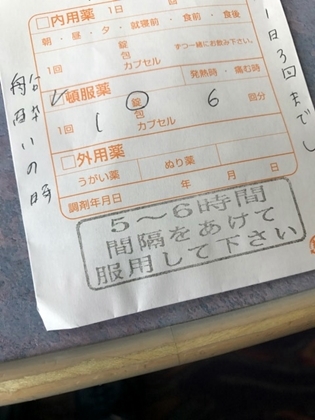 □内用薬 1日 回
朝・昼・夕・就寝前・食前・食後
錠
1回 包 ずつ一緒にお飲み下さい。
カプセル
頓服薬 発熱時・痛む時
錠
1回 1 包 6 回分
カプセル
□外用薬
うがい薬 ぬり薬
調剤年月日 年 月 日
5～6時間
間隔をあけて
服用して下さい
1日3回まで
の時